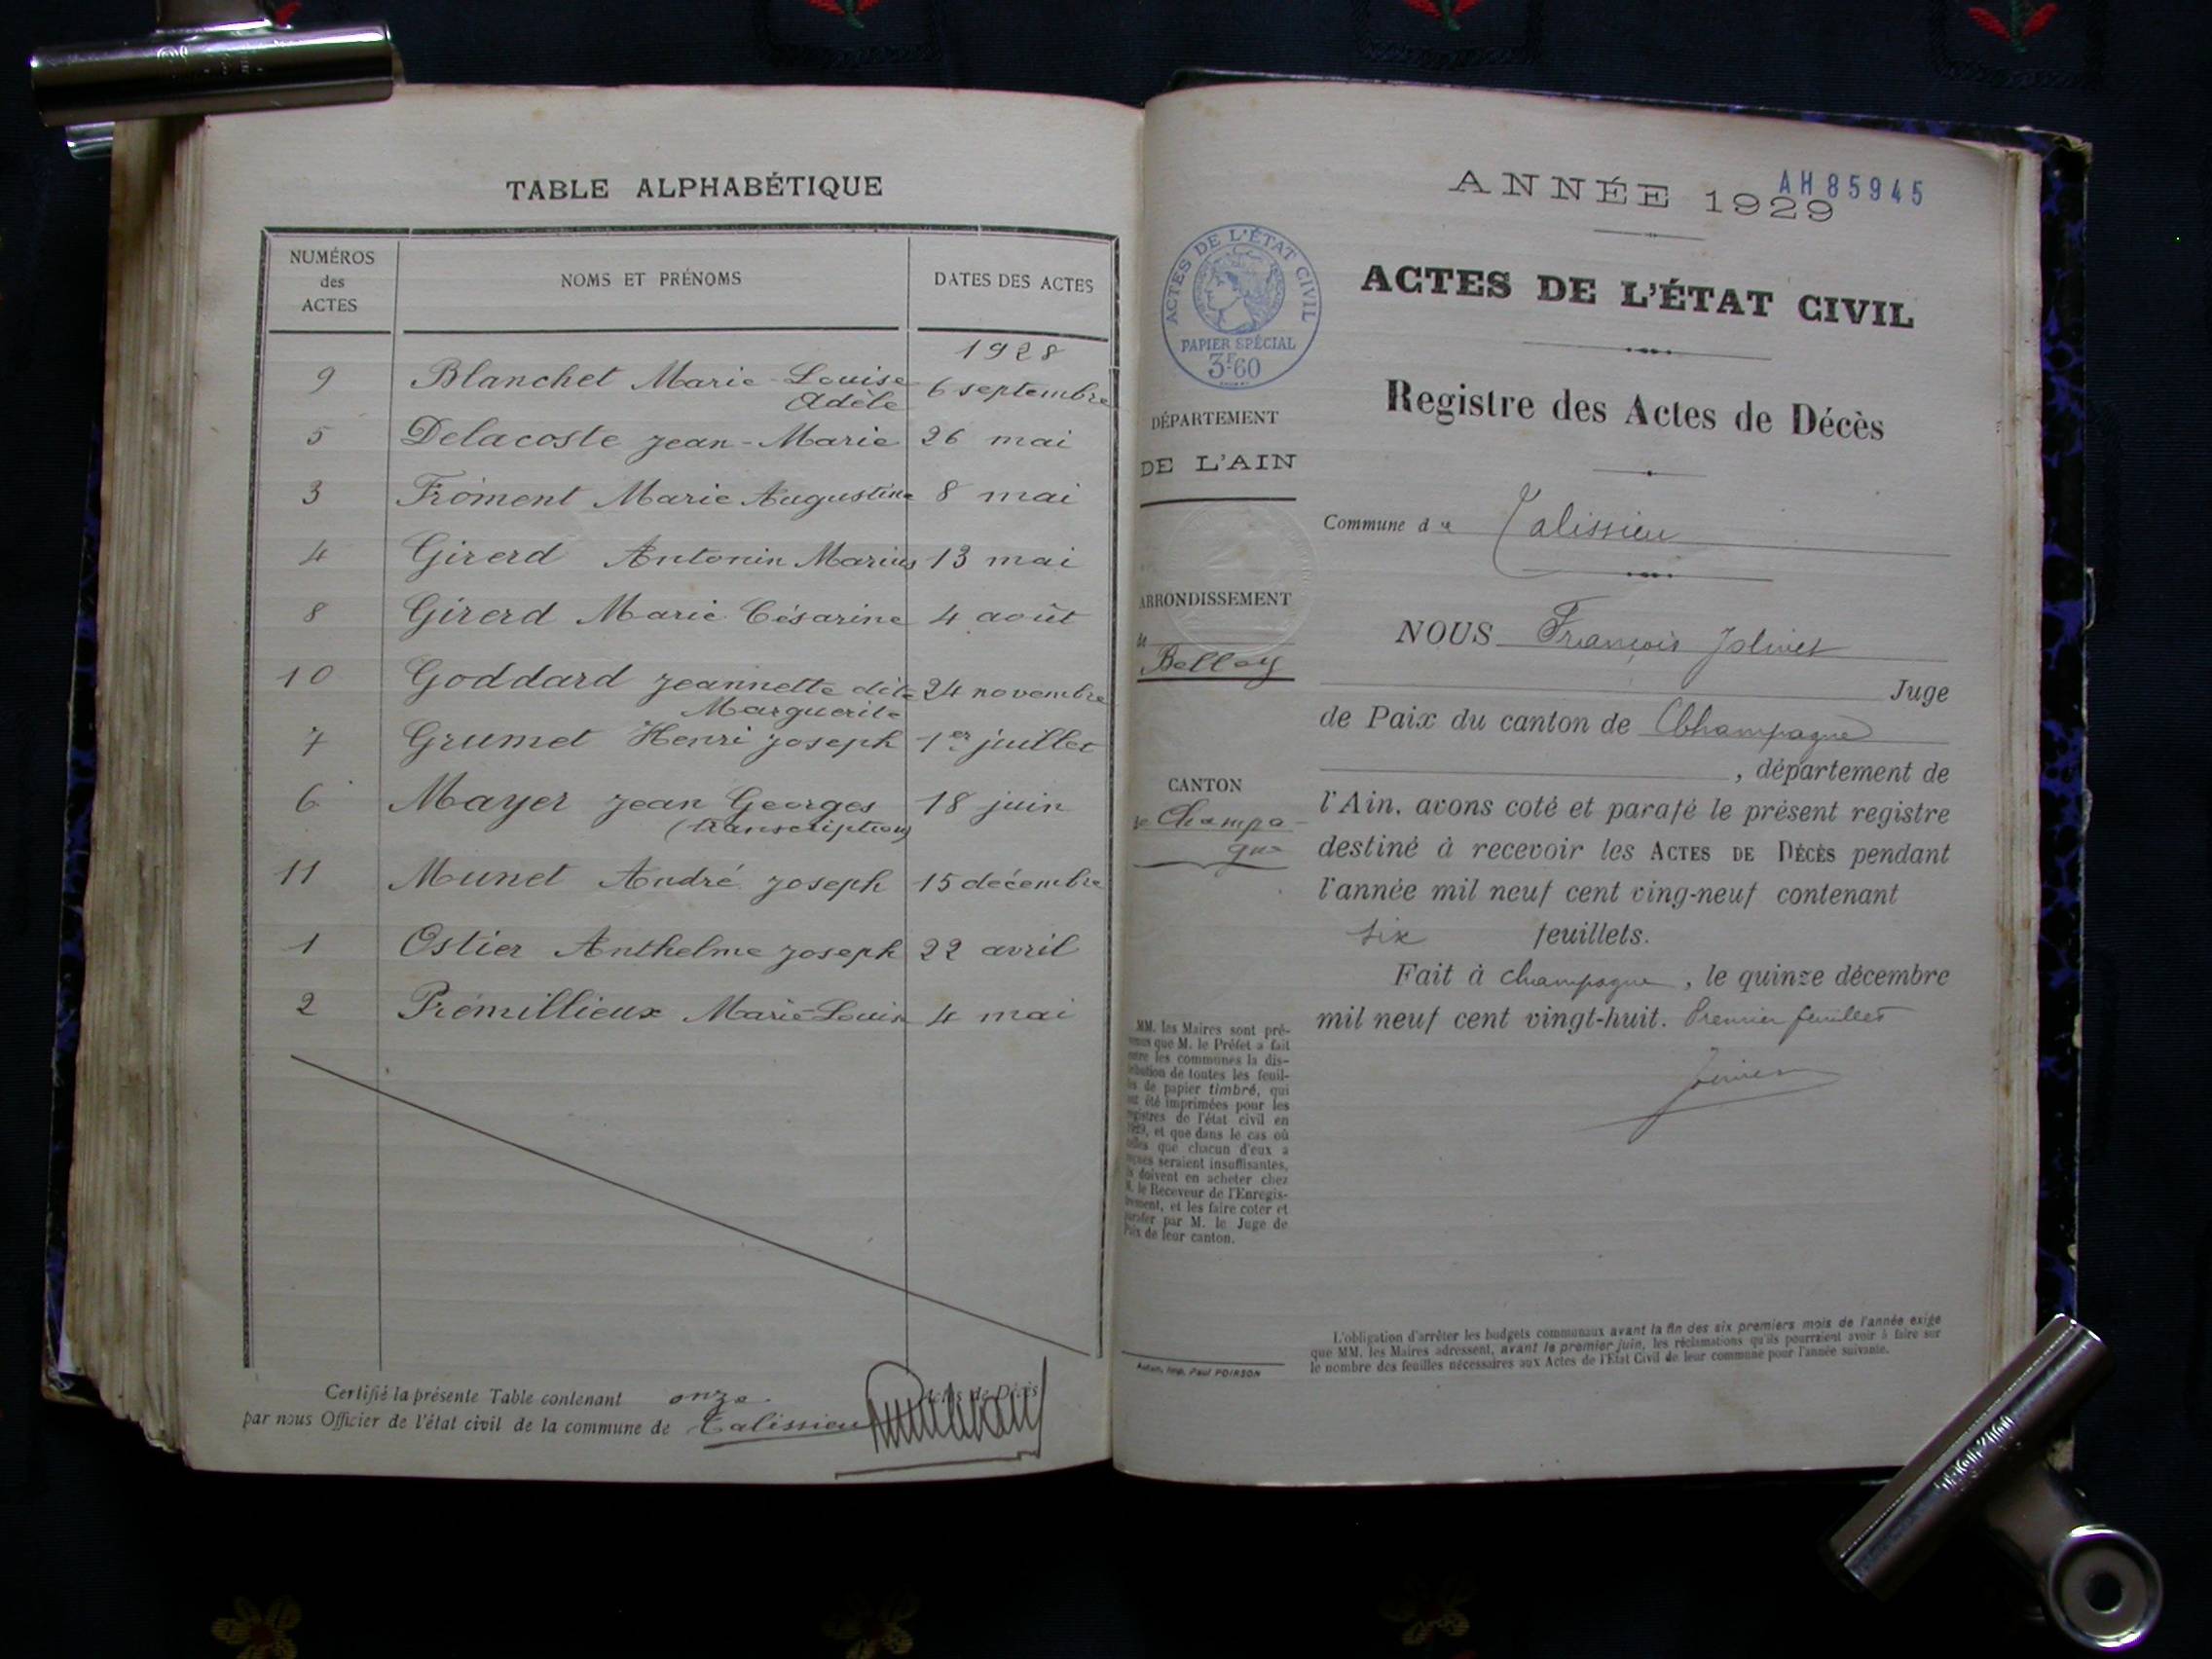 TABLE ALPHABÉTIQUE
NUMÉROS des ACTES
NOMS ET PRÉNOMS
DATES DES ACTES
1928
9 Blanchet Marie-Louise Adèle 6 septembre
5 Delacoste Jean-Marie 26 mai
3 Froment Marie Augustine 8 mai
4 Girerd Antonin Marius 13 mai
8 Girerd Marie Césarine 4 août
10 Goddard Jeannette dite Marguerite 24 novembre
7 Grumet Henri Joseph 1er juillet
6 Mayer Jean Georges (transcription) 18 juin
11 Munet André Joseph 15 décembre
1 Ostier Anthelme Joseph 22 avril
2 Prémillieux Marie-Louise 4 mai
Certifié la présente Table contenant onze Actes de Décès
par nous Officier de l'état civil de la commune de Talissieu
ANNÉE 1929
AH 85945
ACTES DE L'ÉTAT CIVIL
PAPIER SPÉCIAL
3F60
ACTES DE L'ÉTAT CIVIL
Registre des Actes de Décès
DÉPARTEMENT
DE L'AIN
ARRONDISSEMENT
de
Belley
CANTON
de Champa-
gne
MM. les Maires sont pré-
venus que M. le Préfet a fait
entre les communes la dis-
tribution de toutes les feuil-
les de papier timbré, qui
ont été imprimées pour les
registres de l'état civil en
1929, et que dans le cas où
celles que chacun d'eux a
reçues seraient insuffisantes,
ils doivent en acheter chez
M. le Receveur de l'Enregis-
trement, et les faire coter et
parafer par M. le Juge de
Paix de leur canton.
Commune de Talissieu
NOUS François Jolivet
Juge
de Paix du canton de Champagne
, département de
l'Ain, avons coté et parafé le présent registre
destiné à recevoir les ACTES DE DÉCÈS pendant
l'année mil neuf cent ving-neuf contenant
six feuillets.
Fait à Champagne, le quinze décembre
mil neuf cent vingt-huit. Premier feuillet
L'obligation d'arrêter les budgets communaux avant la fin des six premiers mois de l'année exige
que MM. les Maires adressent, avant le premier juin, les réclamations qu'ils pourraient avoir à faire sur
le nombre des feuilles nécessaires aux Actes de l'État Civil de leur commune pour l'année suivante.
Imp. Paul POIRSON